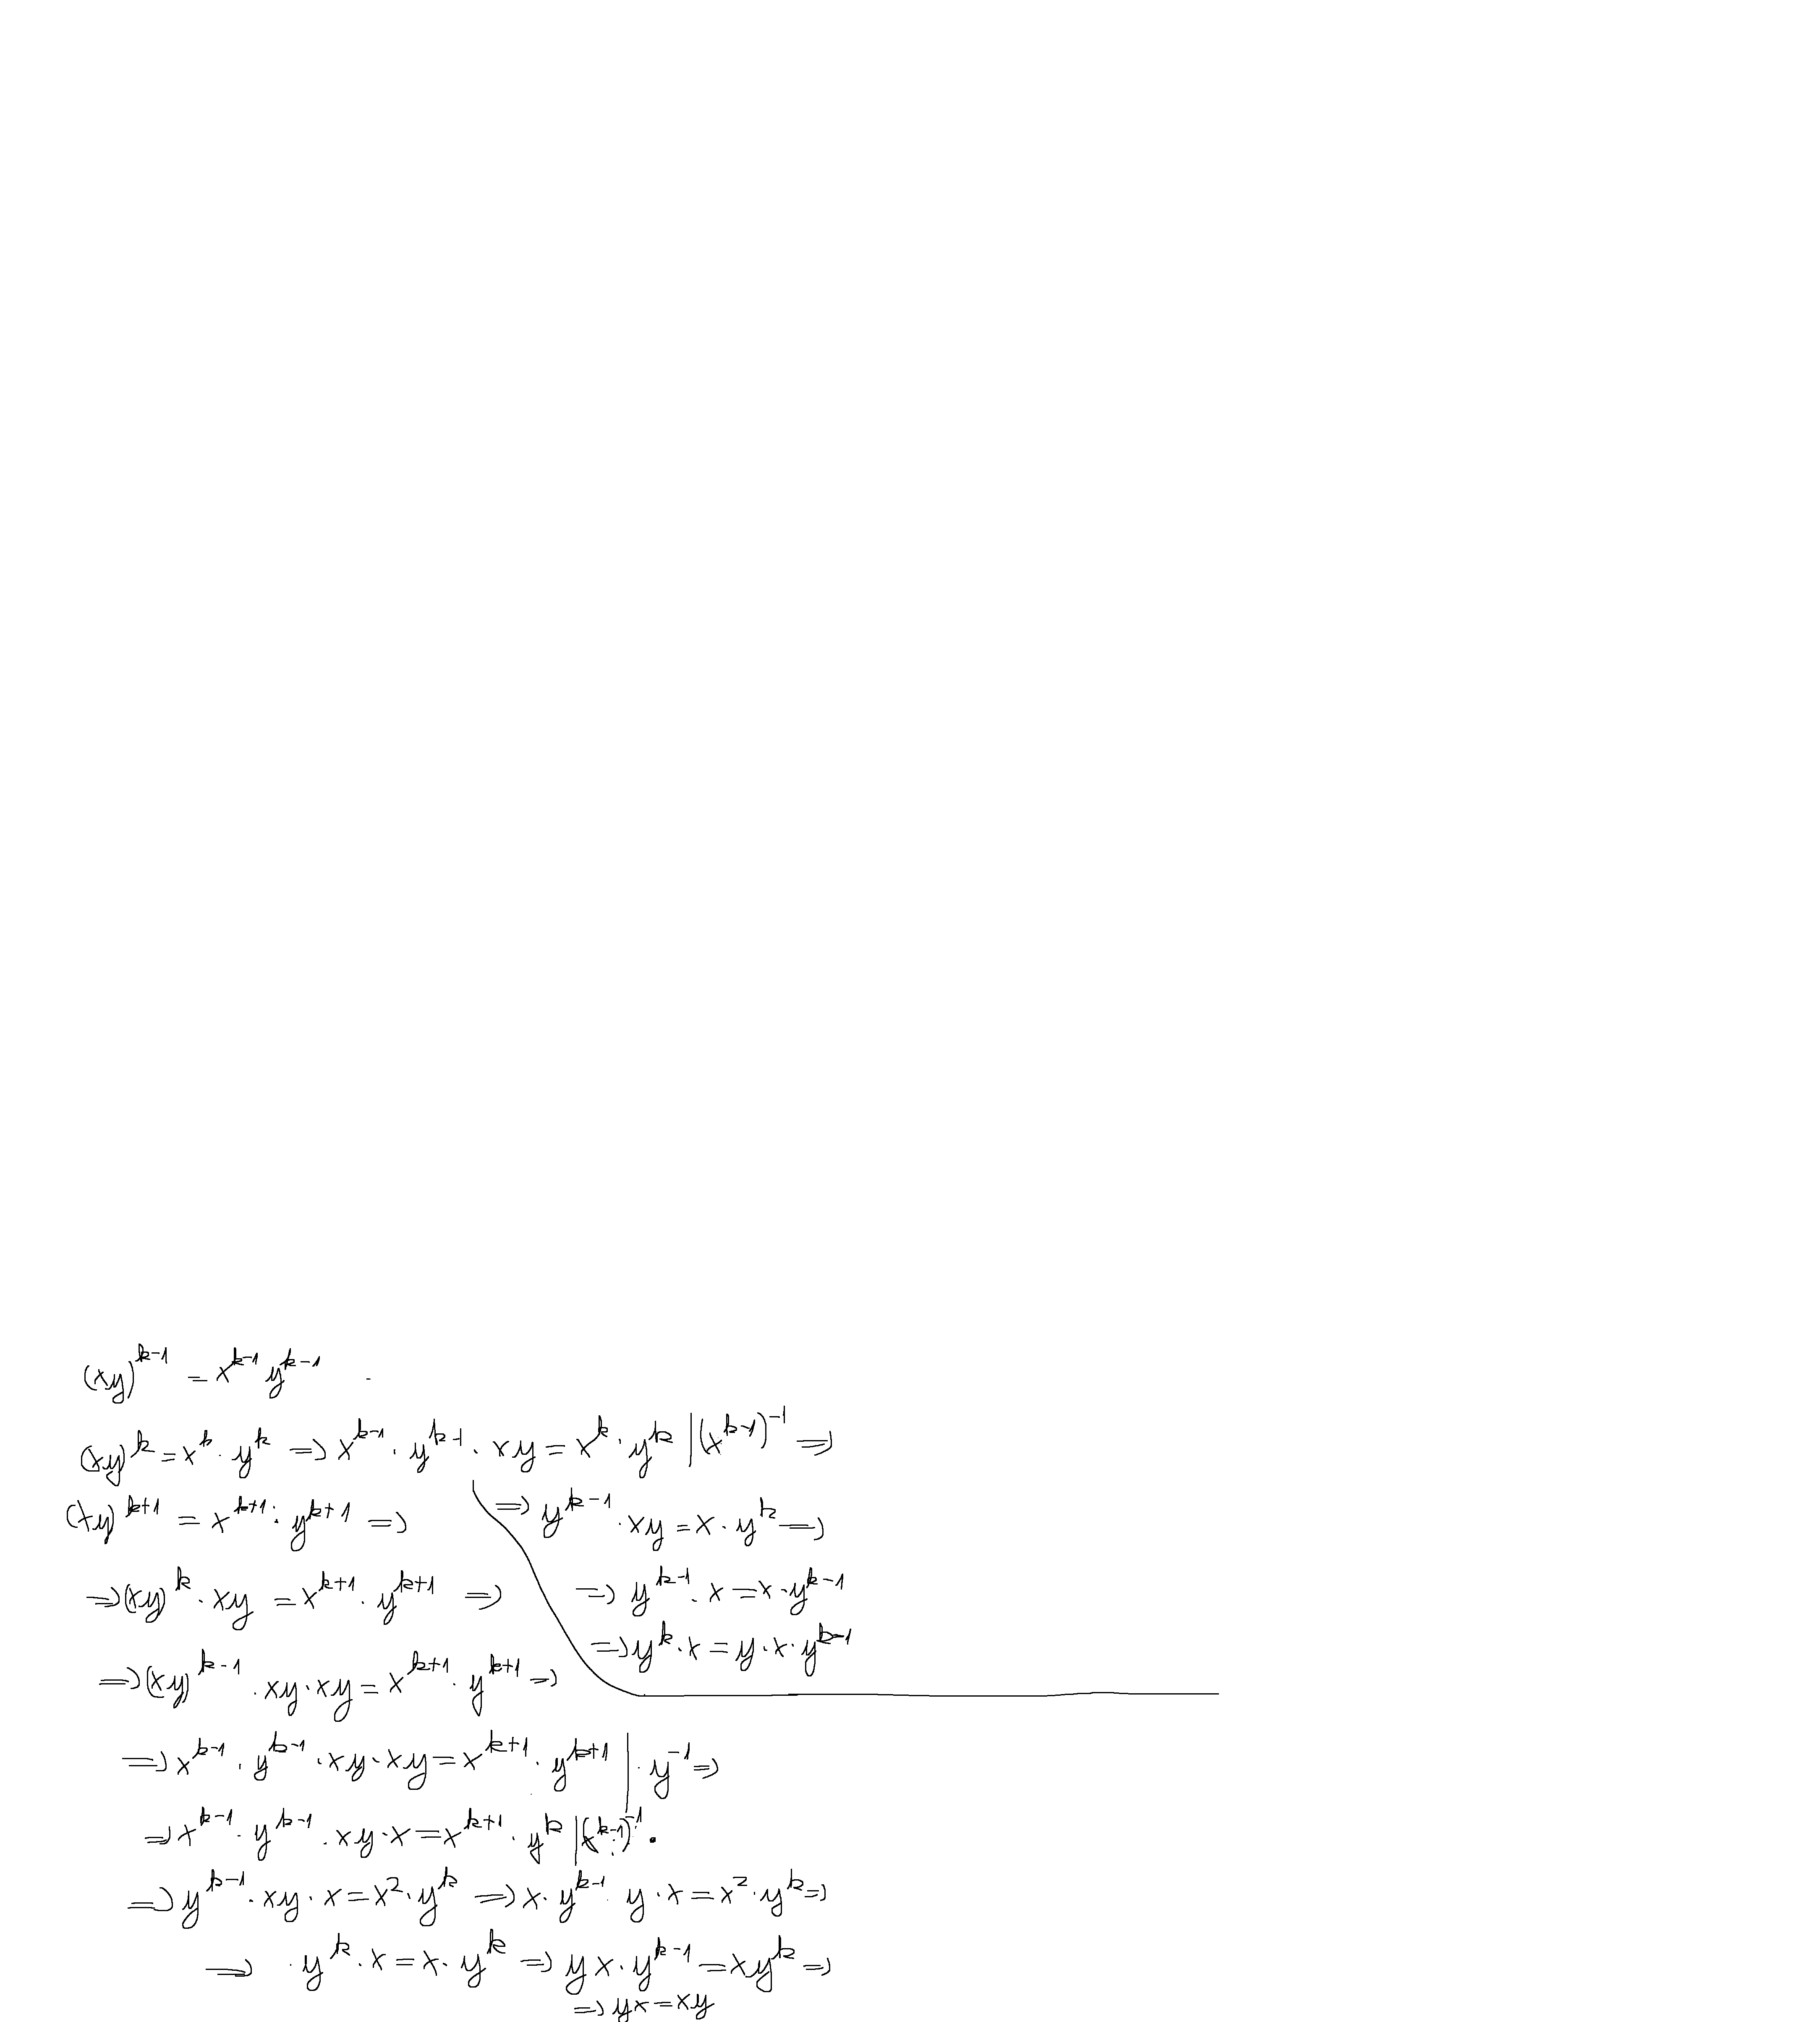 (xy)^{k-1} = x^{k-1} y^{k-1} .
(xy)^k = x^k · y^k => x^{k-1} · y^{k-1} · xy = x^k · y^k | (x^{k-1})^{-1} =>
=> y^{k-1} · xy = x · y^k =>
=> y^{k-1} · x = x · y^{k-1}
=> y^k · x = y · x · y^{k-1}
(xy)^{k+1} = x^{k+1} · y^{k+1} =>
=> (xy)^k · xy = x^{k+1} · y^{k+1} =>
=> (xy)^{k-1} · xy · xy = x^{k+1} · y^{k+1} =>
=> x^{k-1} · y^{k-1} · xy · xy = x^{k+1} · y^{k+1} | · y^{-1} =>
=> x^{k-1} · y^{k-1} · xy · x = x^{k+1} · y^k | (x^{k-1})^{-1} ·
=> y^{k-1} · xy · x = x^2 · y^k => x · y^{k-1} · y · x = x^2 · y^k =>
=> · y^k · x = x · y^k => yx · y^{k-1} = xy^k =>
=> yx = xy